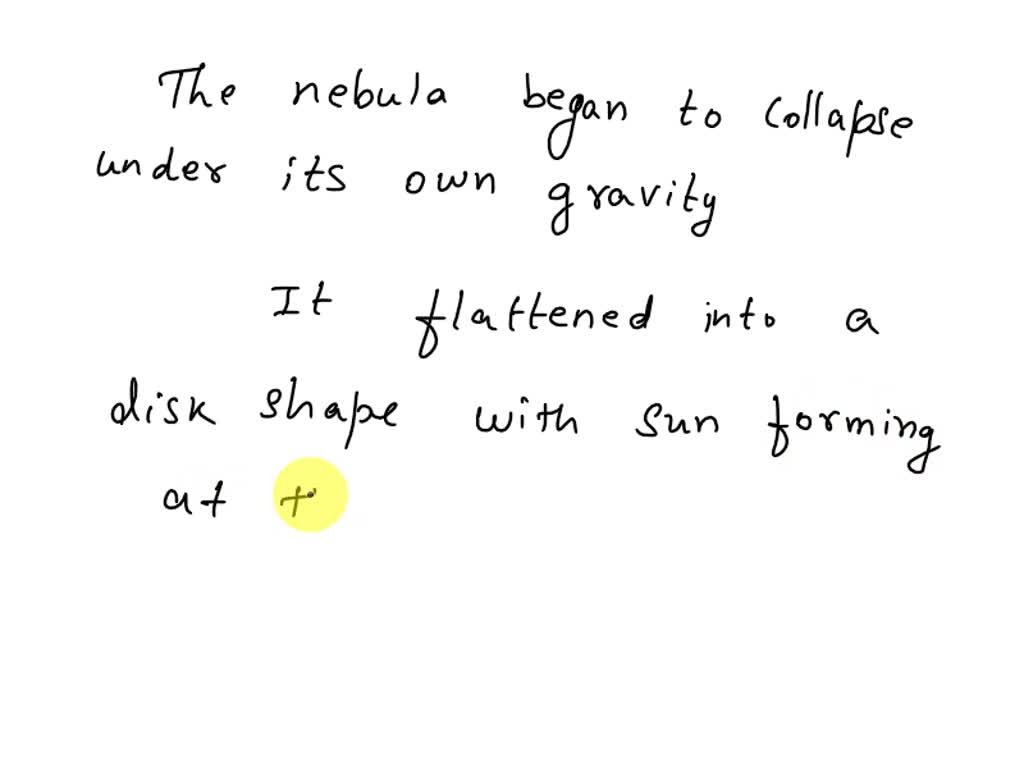 The nebula began to collapse
under its own gravity
It flattened into a
disk shape with sun forming
at t